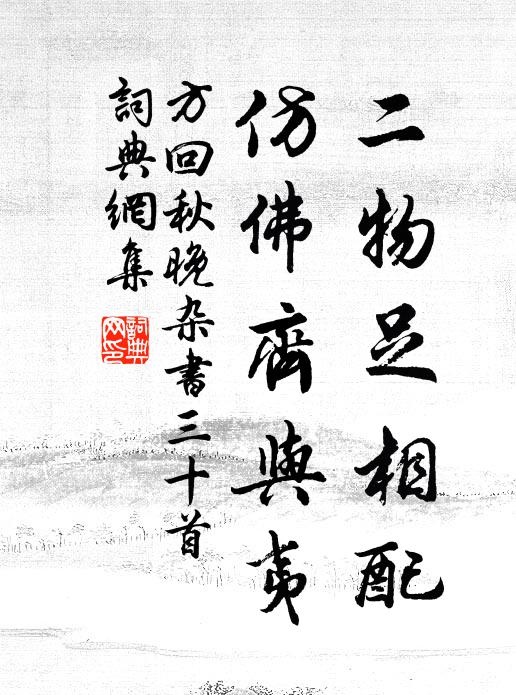 二物足相配
仿佛齊與夷
方回秋晚杂書三十首
詞典網集
詞典
网印